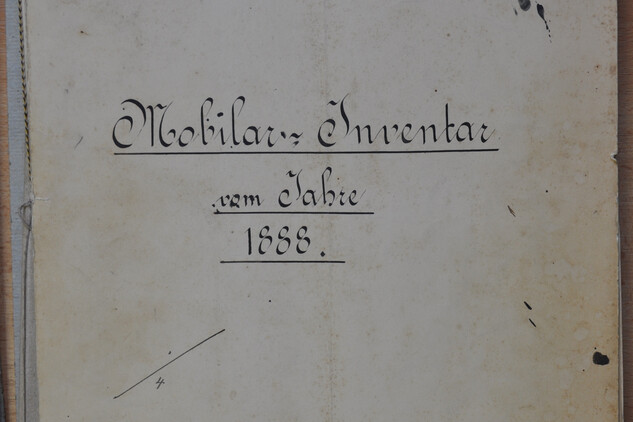 Mobilar- Inventar
vom Jahre
1888.
4